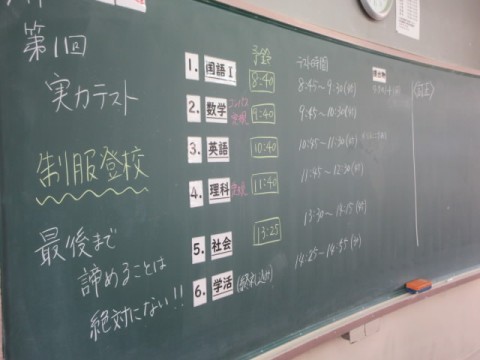 第1回
実力テスト
制服登校
最後まで
諦めることは
絶対にない!!
予鈴 テスト時間
1. 国語Ⅰ 8:40 8:45~9:30(45)
2. 数学 コンパス 定規 9:40 9:45~10:30(45)
3. 英語 10:40 10:45~11:30(45)
4. 理科 定規 11:40 11:45~12:30(45)
5. 社会 13:25 13:30~14:15(45)
6. 学活 14:25~14:35(10)
提出物